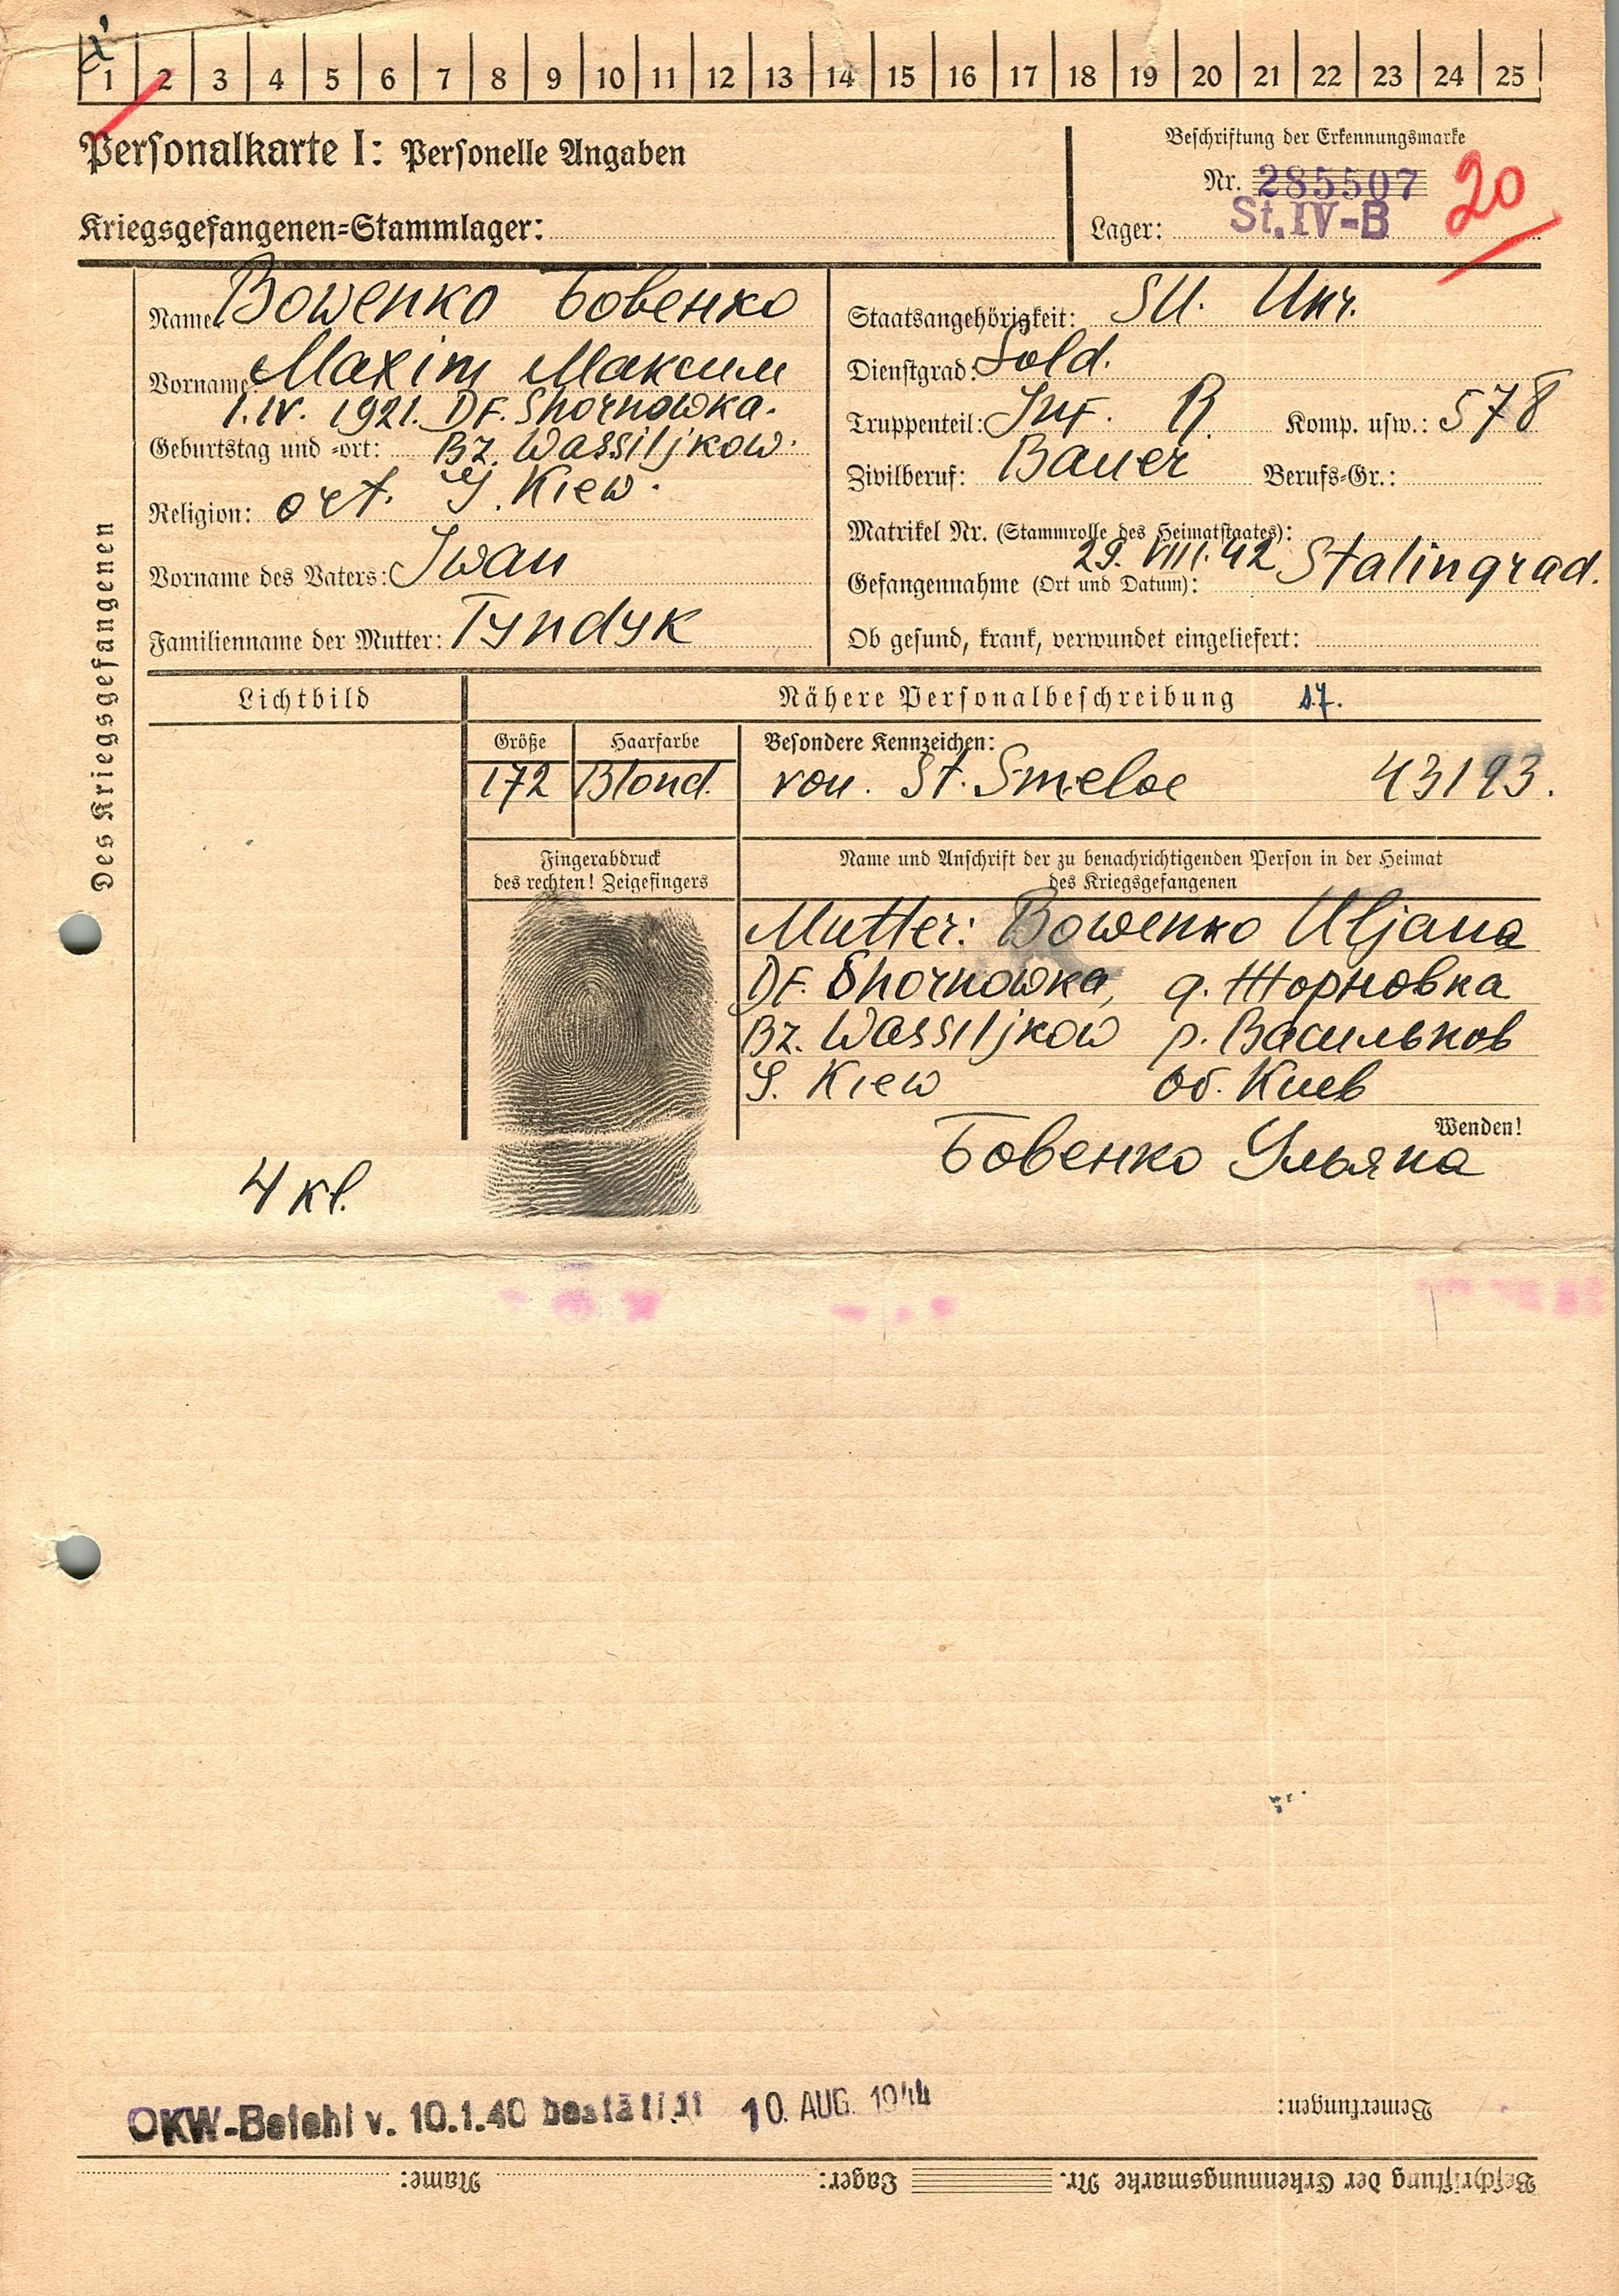 1 2 3 4 5 6 7 8 9 10 11 12 13 14 15 16 17 18 19 20 21 22 23 24 25
Personalkarte I: Personelle Angaben
Beschriftung der Erkennungsmarke
Nr. 285507
20
Kriegsgefangenen-Stammlager:
Lager: St. IV-B
Des Kriegsgefangenen
Name: Bowenko Бовенко
Vorname: Maxim Максим
1.IV. 1921. DF. Shornowka.
Geburtstag und -ort: Bz. Wassiljkow.
G. Kiew.
Religion: ort.
Vorname des Vaters: Iwan
Familienname der Mutter: Tyndyk
Staatsangehörigkeit: SU. Ukr.
Dienstgrad: Sold.
Truppenteil: Inf. R. Komp. usw.: 578
Zivilberuf: Bauer Berufs-Gr.:
Matrikel Nr. (Stammrolle des Heimatstaates):
Gefangennahme (Ort und Datum): 29. VIII. 42 Stalingrad.
Ob gesund, krank, verwundet eingeliefert:
Lichtbild
Nähere Personalbeschreibung
Größe Haarfarbe Besondere Kennzeichen:
172 Blond. von. St. Smeloe 43193.
Fingerabdruck
des rechten! Zeigefingers
Name und Anschrift der zu benachrichtigenden Person in der Heimat
des Kriegsgefangenen
Mutter: Bowenko Uljana
DF. Shornowka, д. Жорновка
Bz. Wassiljkow р. Васильков
G. Kiew об. Киев
Wenden!
Бовенко Ульяна
4 kl.
OKW-Befehl v. 10.1.40 bestätigt 10. AUG. 1944
Bemerkungen:
Beschriftung der Erkennungsmarke Nr. Lager: Name: